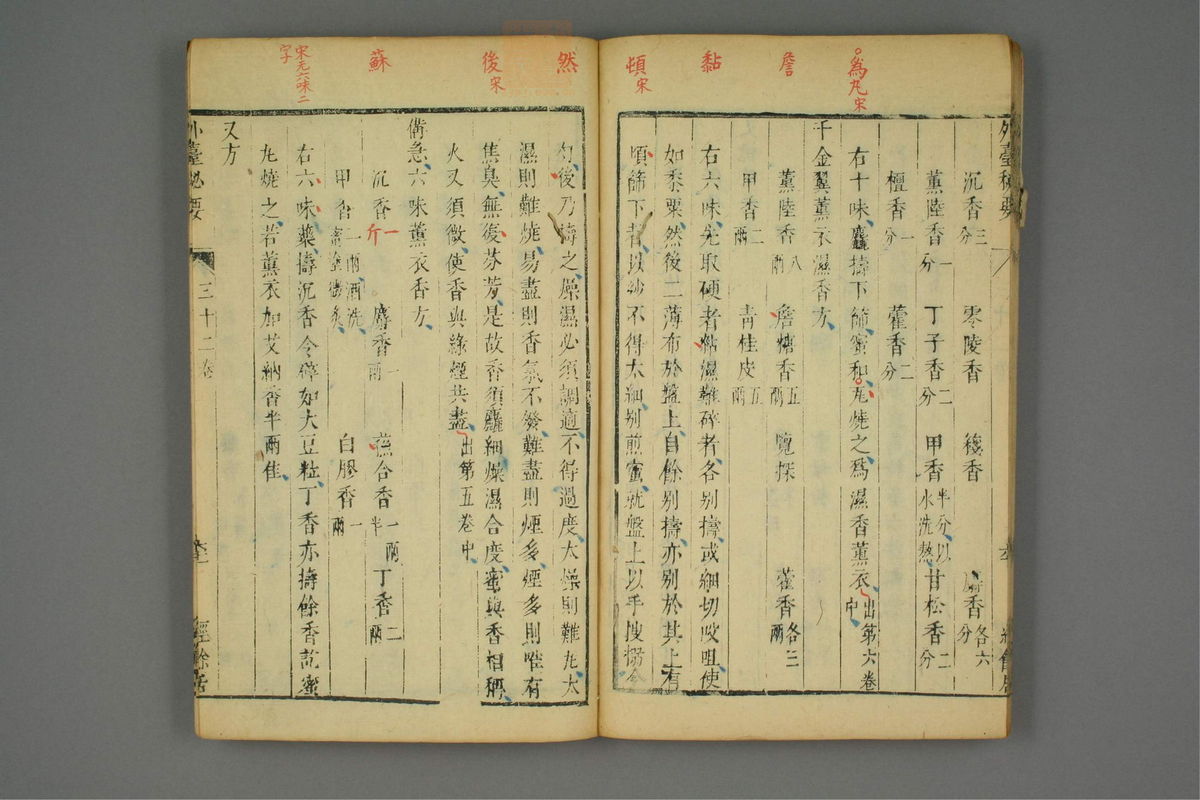 為丸宋
詹
黏
頃宋
外臺秘要
沉香三分 零陵香 䅼香 麝香各六分
薰陸香一分 丁子香二分 甲香半分以水洗熬 甘松香二分
檀香一分 藿香二分
右十味麤擣下篩蜜和丸燒之爲濕香薰衣出第六卷中
千金翼薰衣濕香方
薰陸香八兩 詹糖香五兩 覽探 藿香各三兩
甲香二兩 青桂皮五兩
右六味先取硬者粘濕難碎者各別擣或細切㕮咀使
如黍粟然後二薄布於盤上自餘別擣亦別於其上有
須篩下者以紗不得太細別煎蜜就盤上以手搜搦令
然
後宋
蘇
宋无六味二字
勻後乃擣之燥濕必須調適不得過度太燥則難丸太
濕則難燒易盡則香氣不發難盡則煙多煙多則唯有
焦臭無復芬芳是故香須麤細燥濕合度蜜與香相稱
火又須微使香與綠煙共盡出第五卷中
備急六味薰衣香方
沉香一斤 麝香一兩 蘓合香一兩半 丁香二兩
甲香一兩酒洗蜜塗微炙 白膠香一兩
右六味藥擣沉香令碎如大豆粒丁香亦擣餘香訖蜜
丸燒之若薰衣加艾納香半兩佳
又方
外臺秘要 三十二卷 經餘居